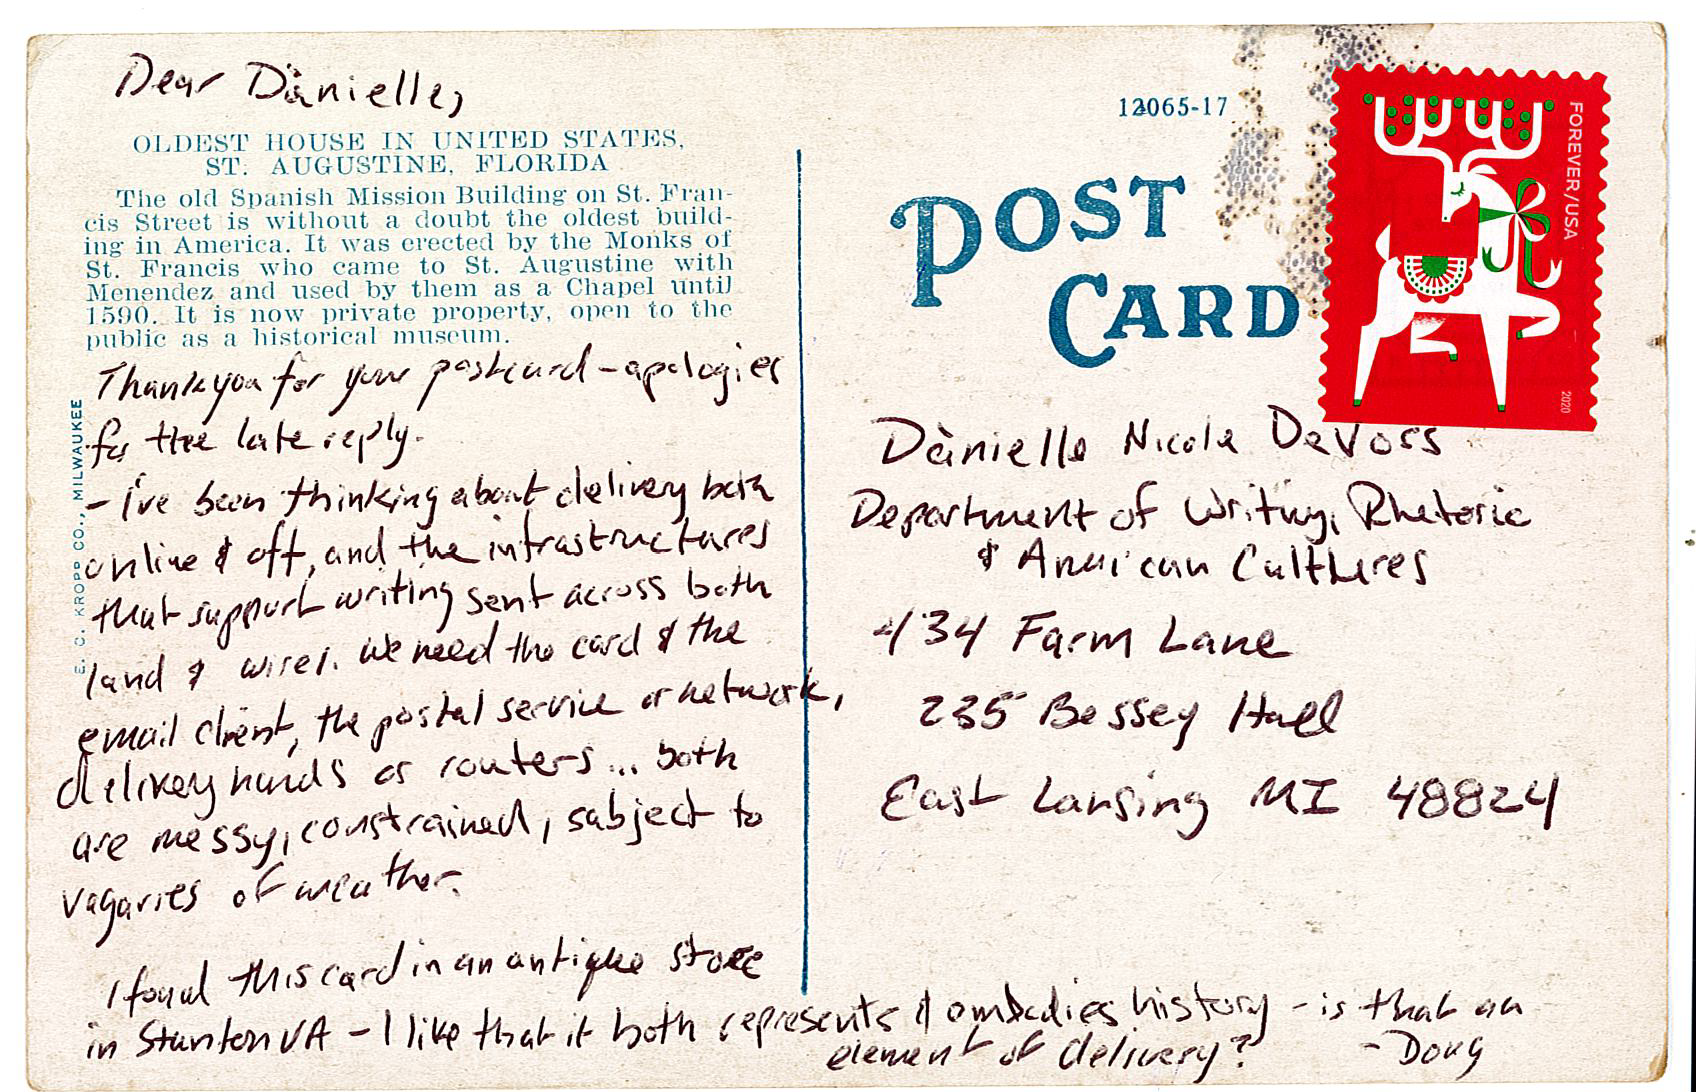 Dear Dànielle,
OLDEST HOUSE IN UNITED STATES,
ST. AUGUSTINE, FLORIDA
The old Spanish Mission Building on St. Fran-
cis Street is without a doubt the oldest build-
ing in America. It was erected by the Monks of
St. Francis who came to St. Augustine with
Menendez and used by them as a Chapel until
1590. It is now private property, open to the
public as a historical museum.
Thank you for your postcard – apologies
for the late reply.
– I've been thinking about delivery both
online & off, and the infrastructures
that support writing sent across both
land & wires. We need the card & the
email client, the postal service or network,
delivery hands or routers... both
are messy, constrained, subject to
vagaries of weather.
I found this card in an antique store
in Stanton VA – I like that it both represents & embodies history – is that an
element of delivery?
– Doug
E. C. KROPP CO., MILWAUKEE
12065-17
POST
CARD
FOREVER/USA
2020
Dànielle Nicole DeVoss
Department of Writing, Rhetoric
& American Cultures
434 Farm Lane
235 Bessey Hall
East Lansing MI 48824